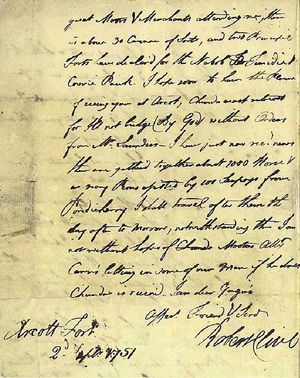 great Moors & Merchants attending me, there
is about 30 Cannon of Sorts, and two Principal
Forts have declared for the Nabob
I hope soon to have the Pleasure
of seeing you at Arcot, Chunda must retreat
for I'll not budge By God without Orders
from Mr. Saunders I have just now rec'd news
there are getted together about 1000 Horse &
as many Peons assisted by 100 Seapoys from
Pondicherry I shall travel after them the
day after to morrow, notwithstanding the I am
not without hopes of
letting in some of our Men if he does
Chunda is ruined I am dear
Affect. Friend & Serv.
Robert Clive
Arcott Fort
2d Sept. 1751